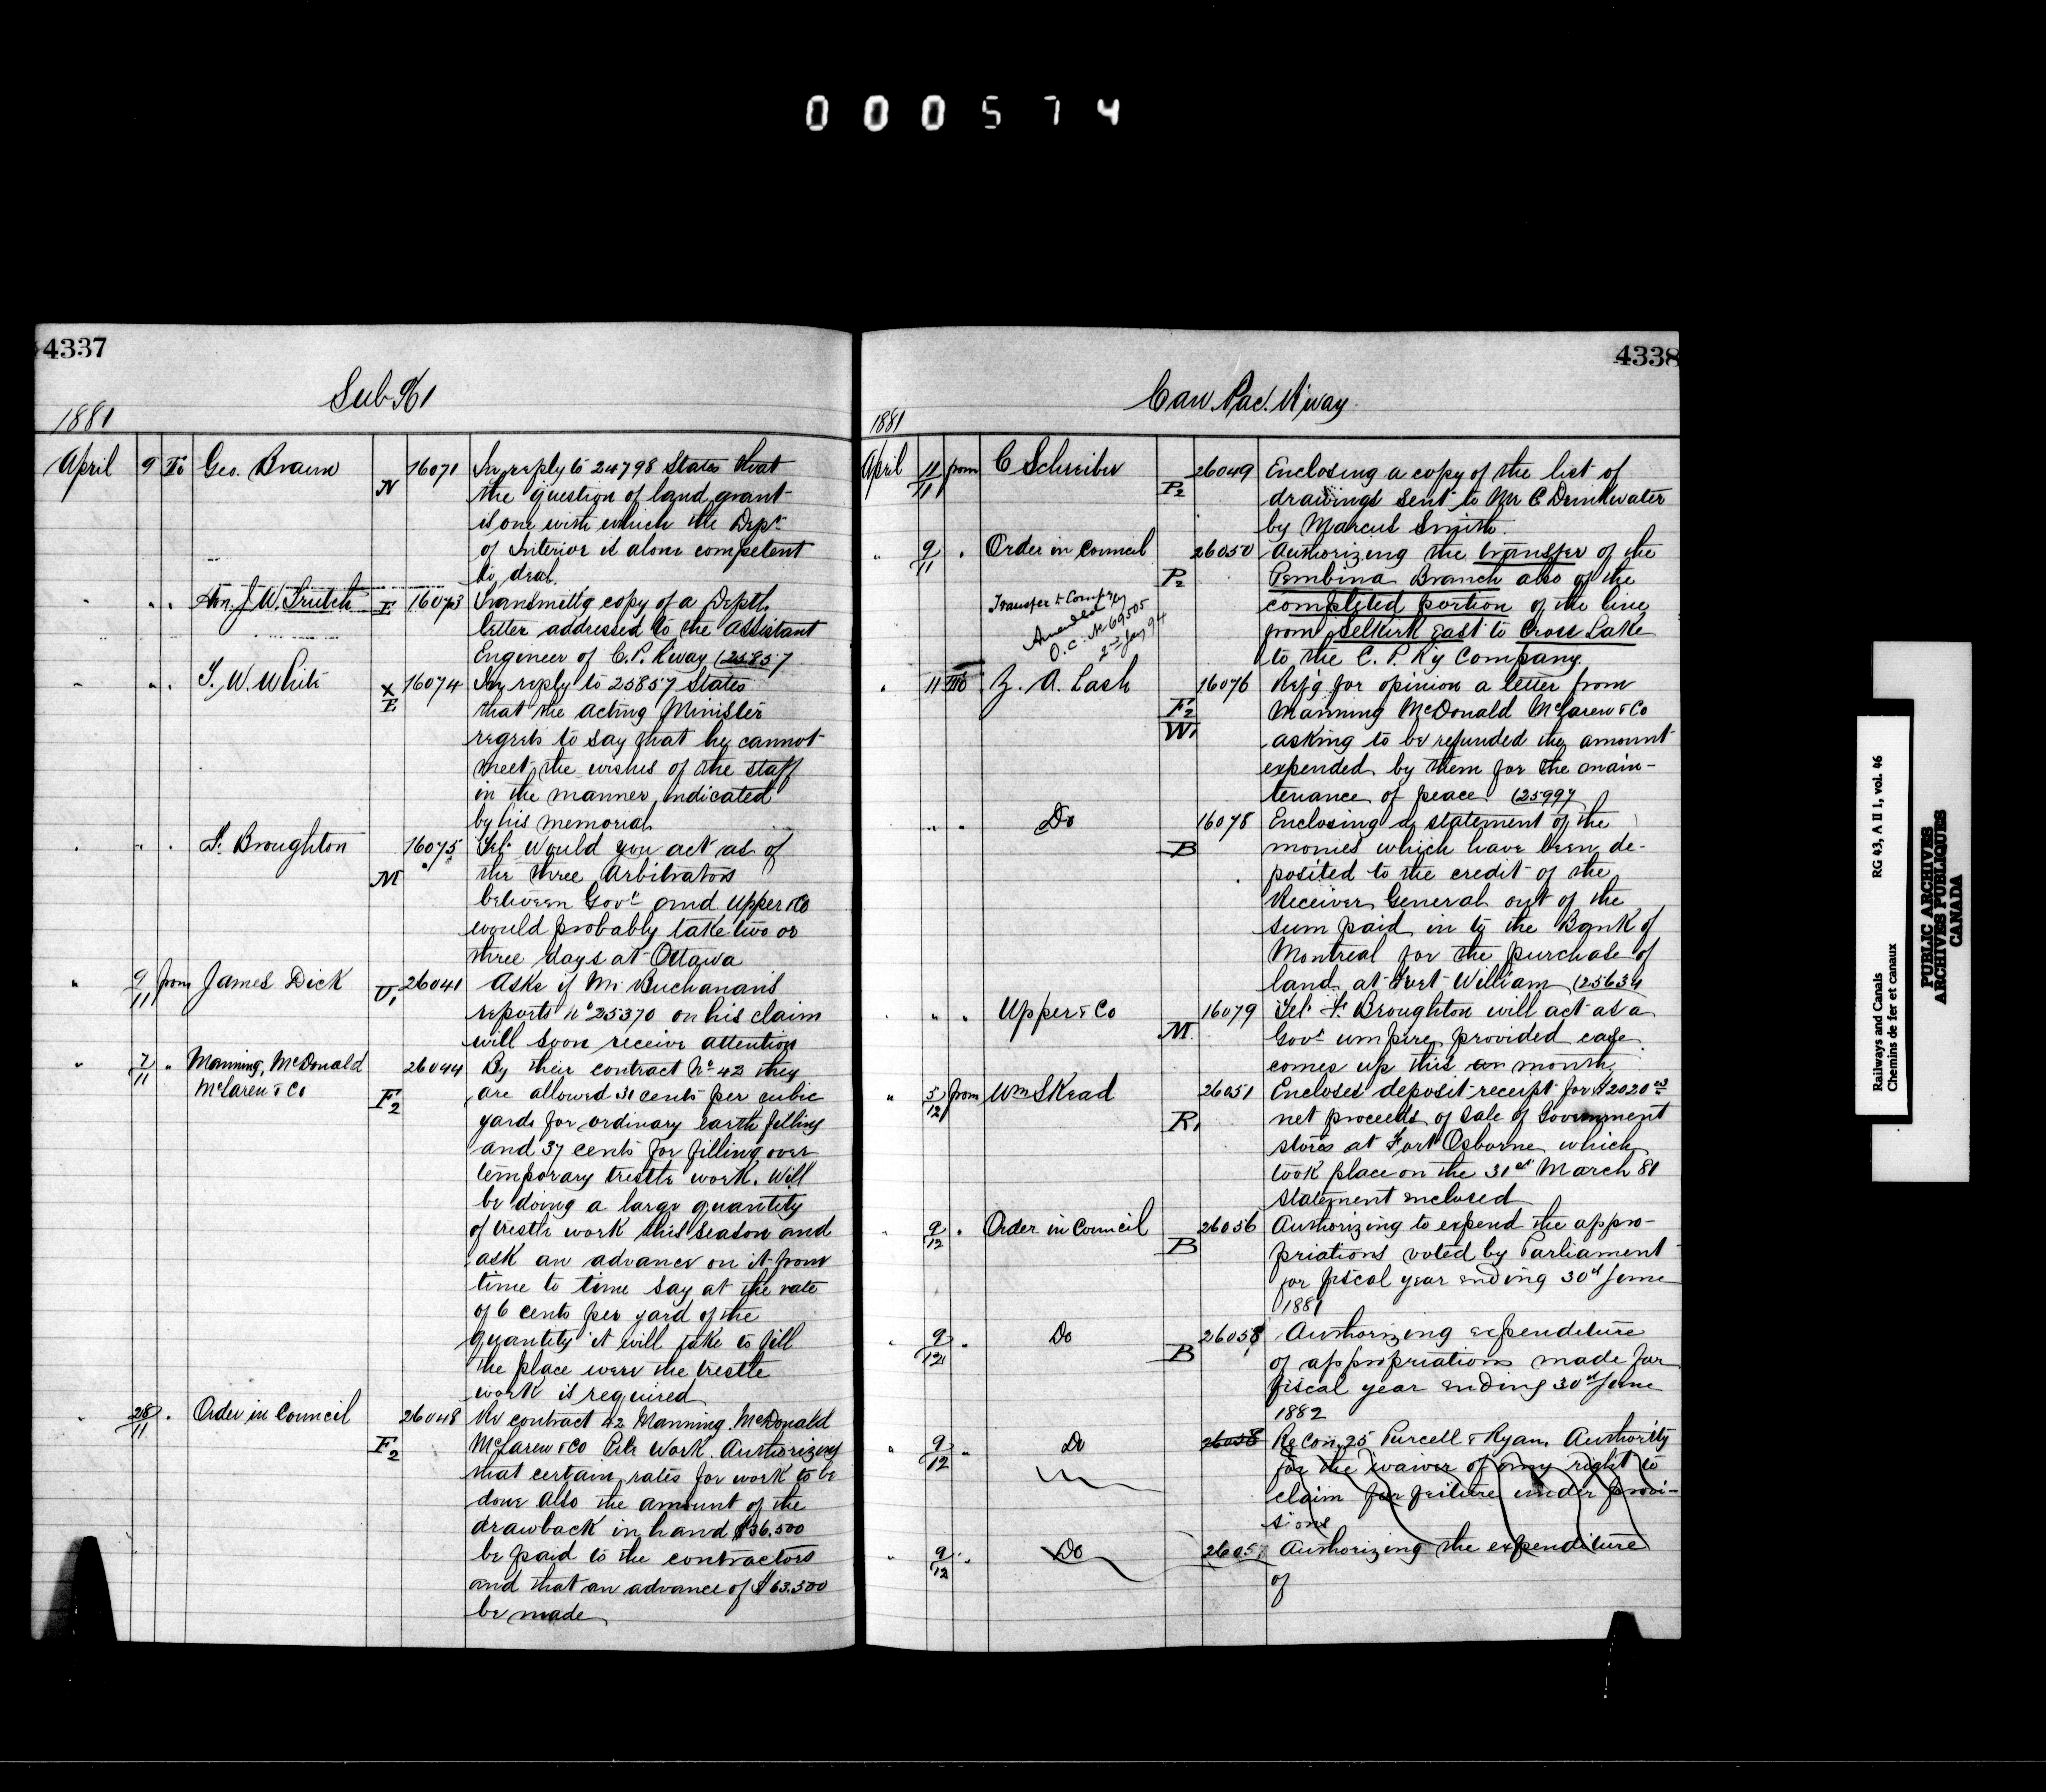 000574
4337
Sub 961
1881
April 9 To Geo. Braun N 16071 In reply to 24798 States that
the question of land grant
is one with which the Dept
of Interior is alone competent
to deal.
" " " Hon. J. W. Trutch E 16073 Transmittg copy of a Deptl
letter addressed to the Assistant
Engineer of C. P. Rway (25857
" " " T. W. White X E 16074 In reply to 25857 States
that the Acting Minister
regrets to say that he cannot
meet the wishes of the staff
in the manner indicated
by his memorial
" " " F. Broughton M 16075 Tel. Would you act as of
the three Arbitrators
between Govt and Upper & Co
would probably take two or
three days at Ottawa
" 9/11 from James Dick U1 26041 Asks if Mr Buchanan's
reports No 25370 on his claim
will soon receive attention
" 7/11 " Manning, McDonald 26044 By their contract No 42 they
McLaren & Co F2 are allowed 31 cents per cubic
yards for ordinary earth filling
and 37 cents for filling over
temporary trestle work. Will
be doing a large quantity
of trestle work this season and
ask an advance on it from
time to time say at the rate
of 6 cents per yard of the
quantity it will take to fill
the place were the trestle
work is required
" 28/11 " Order in Council 26048 Re contract 42 Manning. McDonald
F2 McLaren & Co Pile Work. Authorizing
that certain rates for work to be
done also the amount of the
drawback in hand $36.500
be paid to the contractors
and that an advance of $63.500
be made
4338
Can. Pac. Rway
1881
April 11/11 from C Schreiber P2 26049 Enclosing a copy of the list of
drawings sent to Mr C Drinkwater
by Marcus Smith.
" 9/11 " Order in Council P2 26050 Authorizing the transfer of the
Pembina Branch also of the
completed portion of the line
from Selkirk East to Cross Lake
to the C. P. Ry Company.
Transfer to Company
Amended
O.C. No 69505
2nd Jany 94
" 11 To Z. A. Lash 16076 Ref'g for opinion a letter from
F2 Manning McDonald McLaren & Co
W1 asking to be refunded the amount
expended by them for the main-
tenance of peace (25997
" " " Do 16078 Enclosing a statement of the
B monies which have been de-
posited to the credit of the
Receiver General out of the
sum paid in to the Bank of
Montreal for the purchase of
land at Fort William (25634
" " " Upper & Co 16079 Tel. F. Broughton will act as a
M Govt umpire provided case
comes up this an month
" 5/12 from Wm Skead 26051 Encloses deposit receipt for $2020
R1 net proceeds of sale of Government
stores at Fort Osborne which
took place on the 31st March 81
statement enclosed
" 9/12 " Order in Council 26056 Authorizing to expend the appro-
B priations voted by Parliament
for fiscal year ending 30th June
1881
" 9/12 " Do 26058 Authorizing expenditure
B of appropriations made for
fiscal year ending 30th June
1882
" 9/12 " Do 26058 Re Con. 25 Purcell & Ryan. Authority
for the waiver of any right to
claim forfeiture under provi-
sions
" 9/12 " Do 2605 Authorizing the expenditure
of
Railways and Canals RG 43, A II 1, vol. 46
Chemins de fer et canaux
PUBLIC ARCHIVES
ARCHIVES PUBLIQUES
CANADA